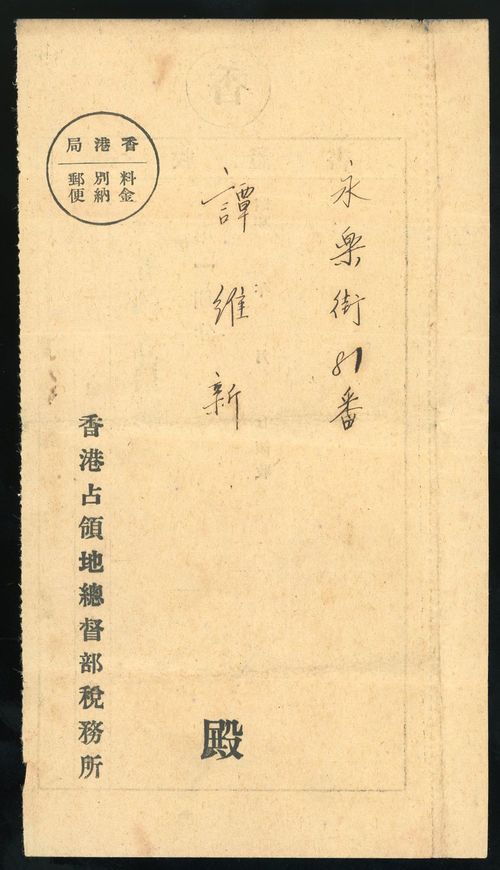 永楽街81番
譚維新 殿
香港局
料金
別納
郵便
香港占領地總督部稅務所